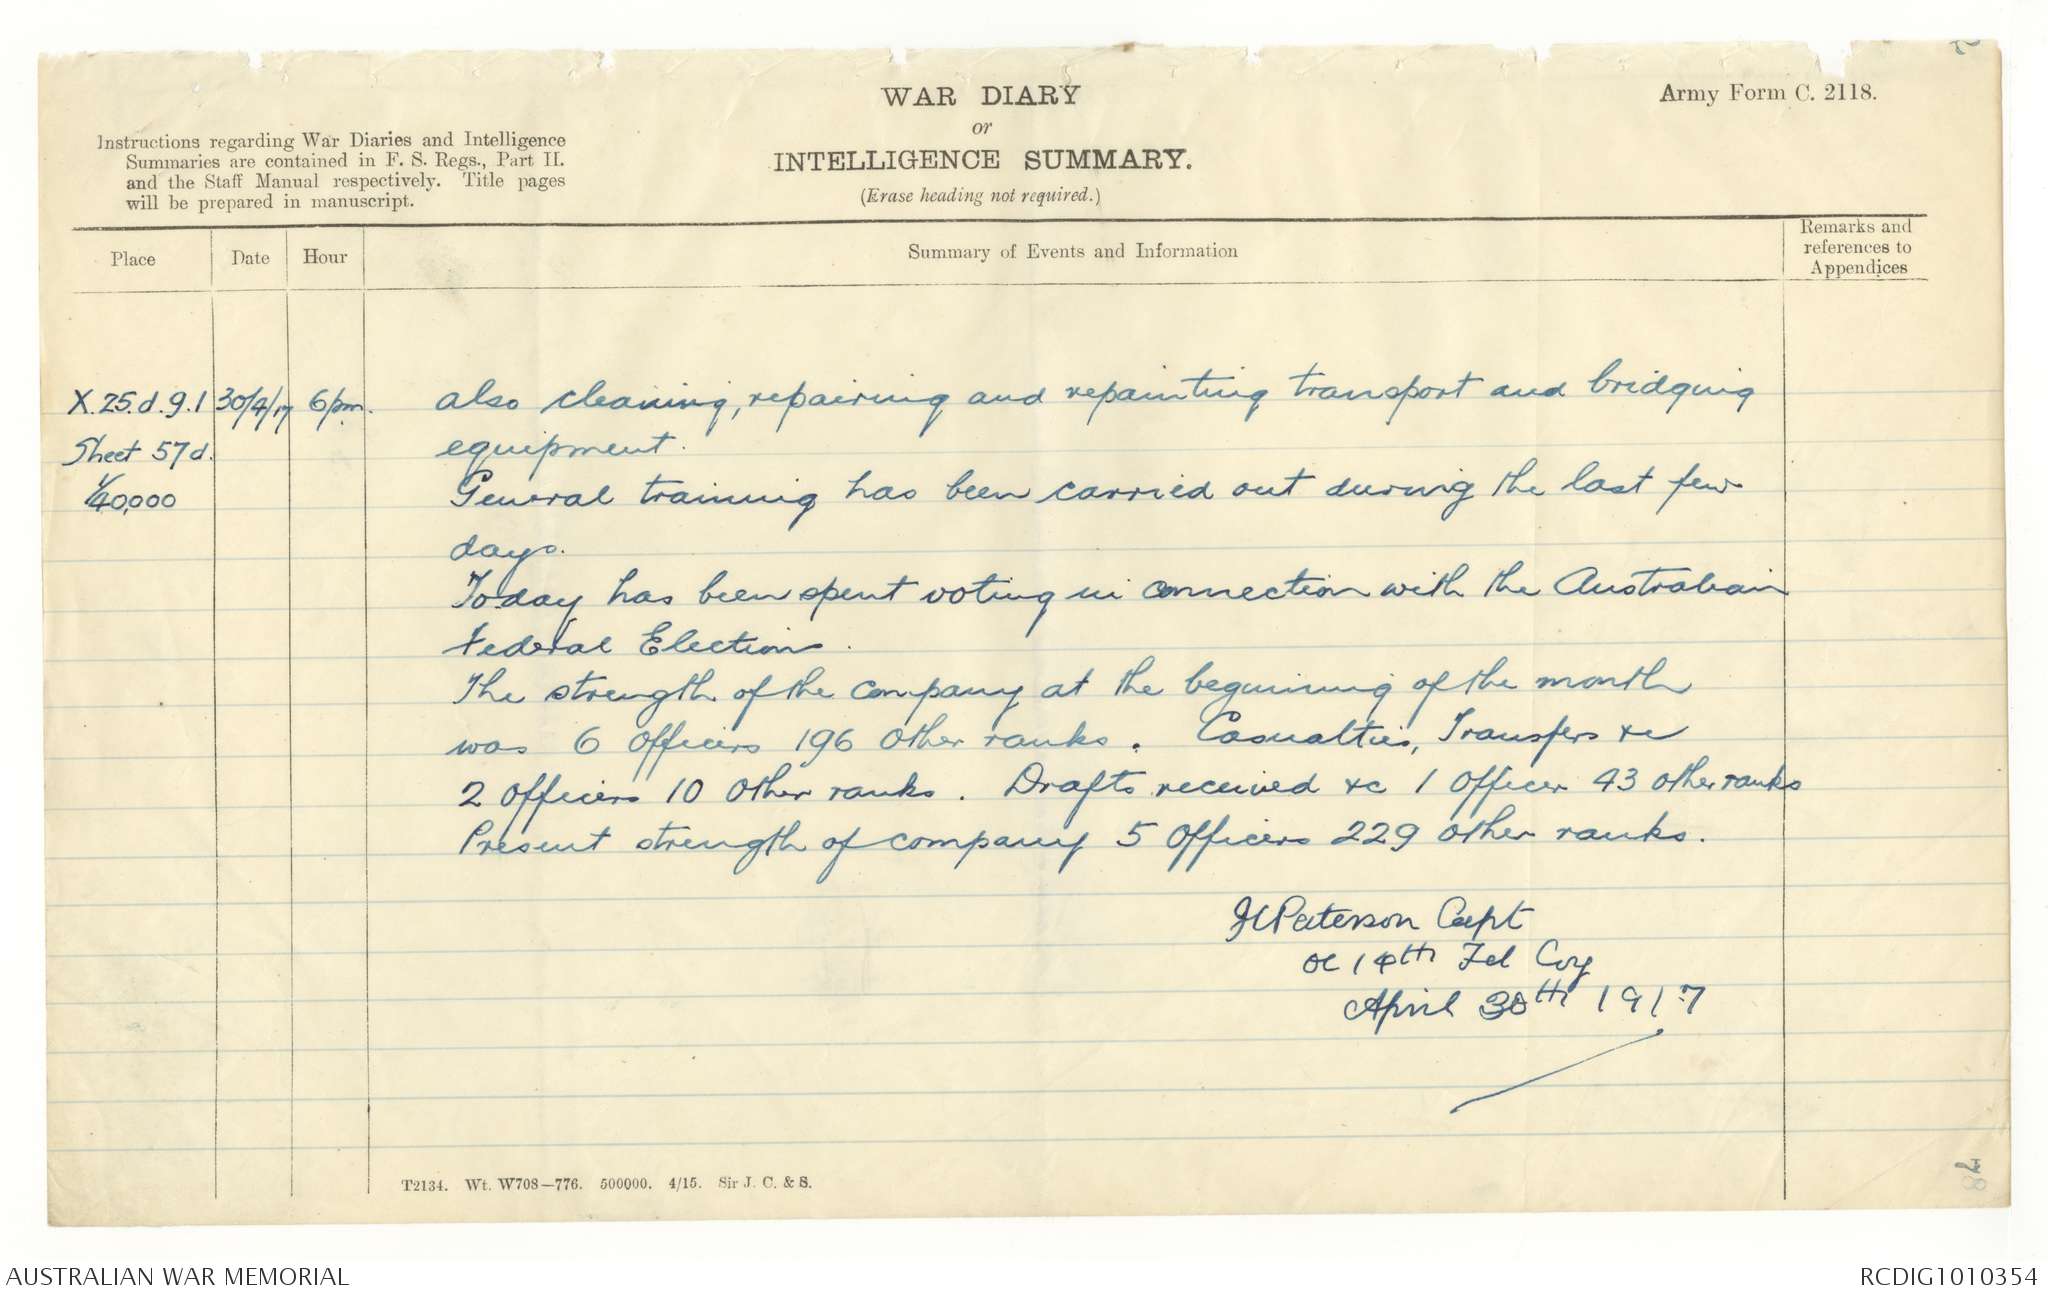 WAR DIARY
or
INTELLIGENCE SUMMARY.
(Erase heading not required.)
Army Form C. 2118.
Instructions regarding War Diaries and Intelligence
Summaries are contained in F. S. Regs., Part II.
and the Staff Manual respectively. Title pages
will be prepared in manuscript.
Place
Date
Hour
Summary of Events and Information
Remarks and
references to
Appendices
X.25.d.9.1 30/4/17 6pm. also cleaning, repairing and repainting transport and bridging
Sheet 57d. equipment.
1/40,000 General training has been carried out during the last few
days.
Today has been spent voting in connection with the Australian
Federal Election.
The strength of the company at the beginning of the month
was 6 Officers 196 Other ranks. Casualties, Transfers &c
2 Officers 10 Other ranks. Drafts received &c 1 Officer 43 other ranks
Present strength of company 5 Officers 229 other ranks.
Paterson Capt
OC 14th Fd Coy
April 30th 1917
T2134. Wt. W708—776. 500000. 4/15. Sir J. C. & S.
78
AUSTRALIAN WAR MEMORIAL
RCDIG1010354